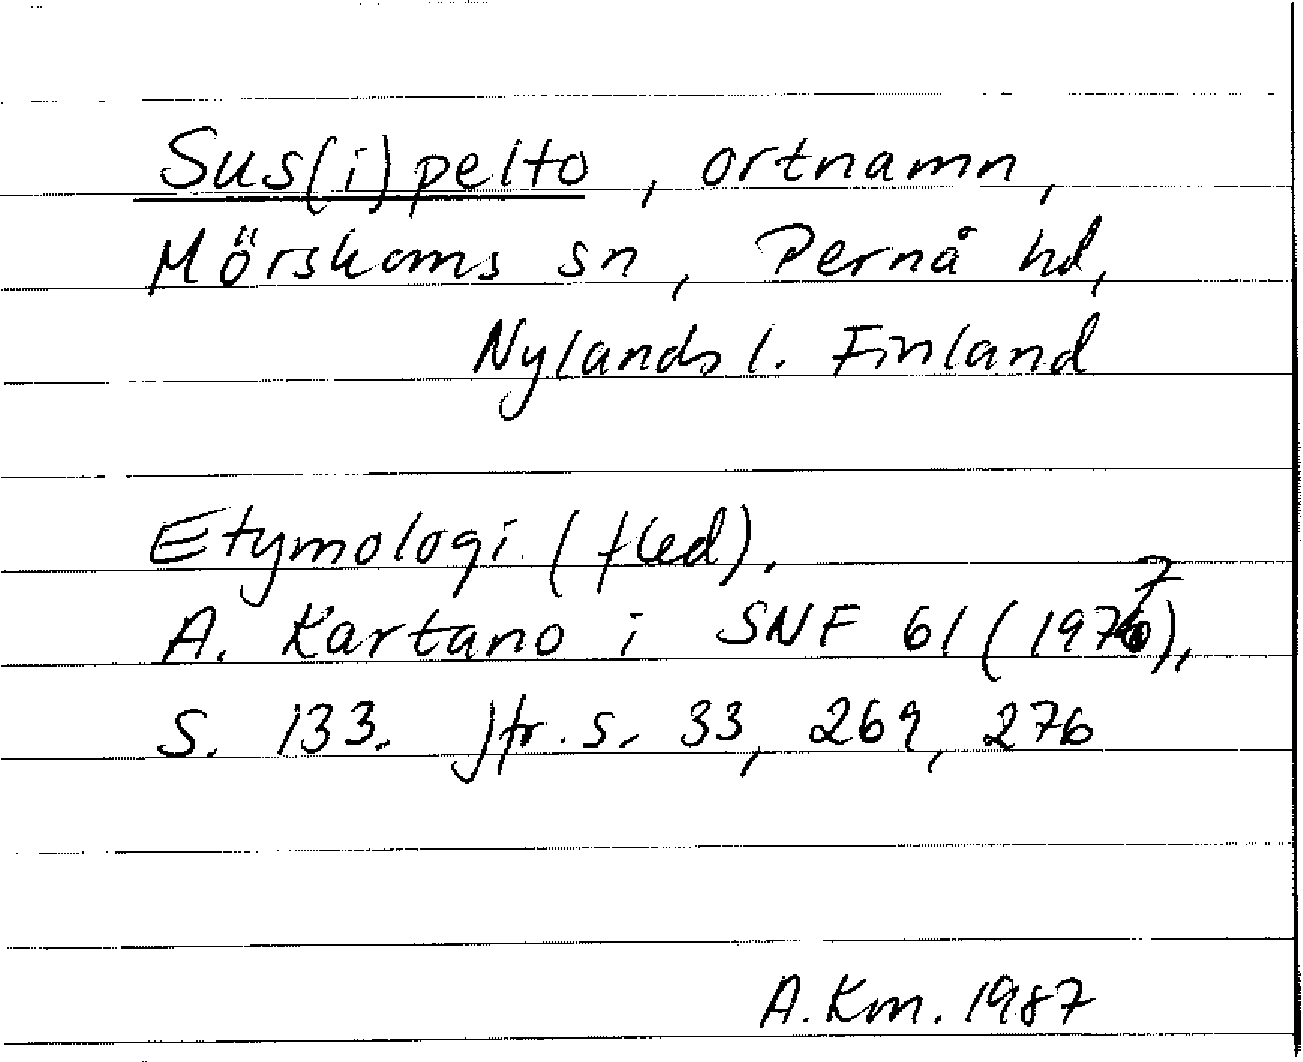 Sus(i)pelto, ortnamn,
Mörskoms sn, Pernå hd,
Nylands l. Finland
Etymologi (fled).
A. Kartano i SNF 61 (1977),
s. 133. Jfr. s. 33, 269, 276
A. Km. 1987